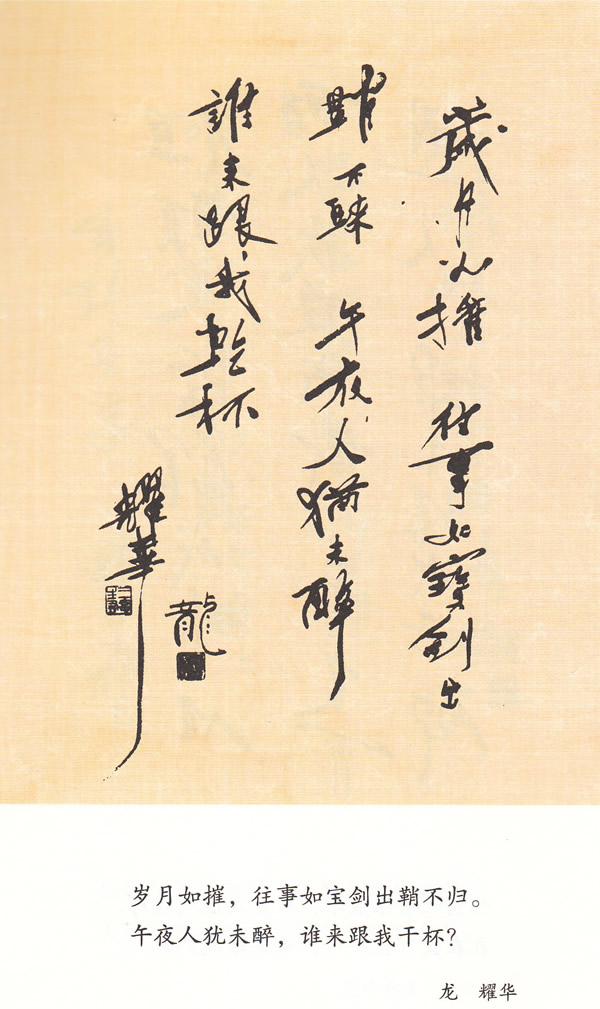 歲月如摧 往事如寶劍出
鞘不歸 午夜人猶未醉
誰来跟我乾杯
耀華
龍
岁月如摧，往事如宝剑出鞘不归。
午夜人犹未醉，谁来跟我干杯？
龙 耀华